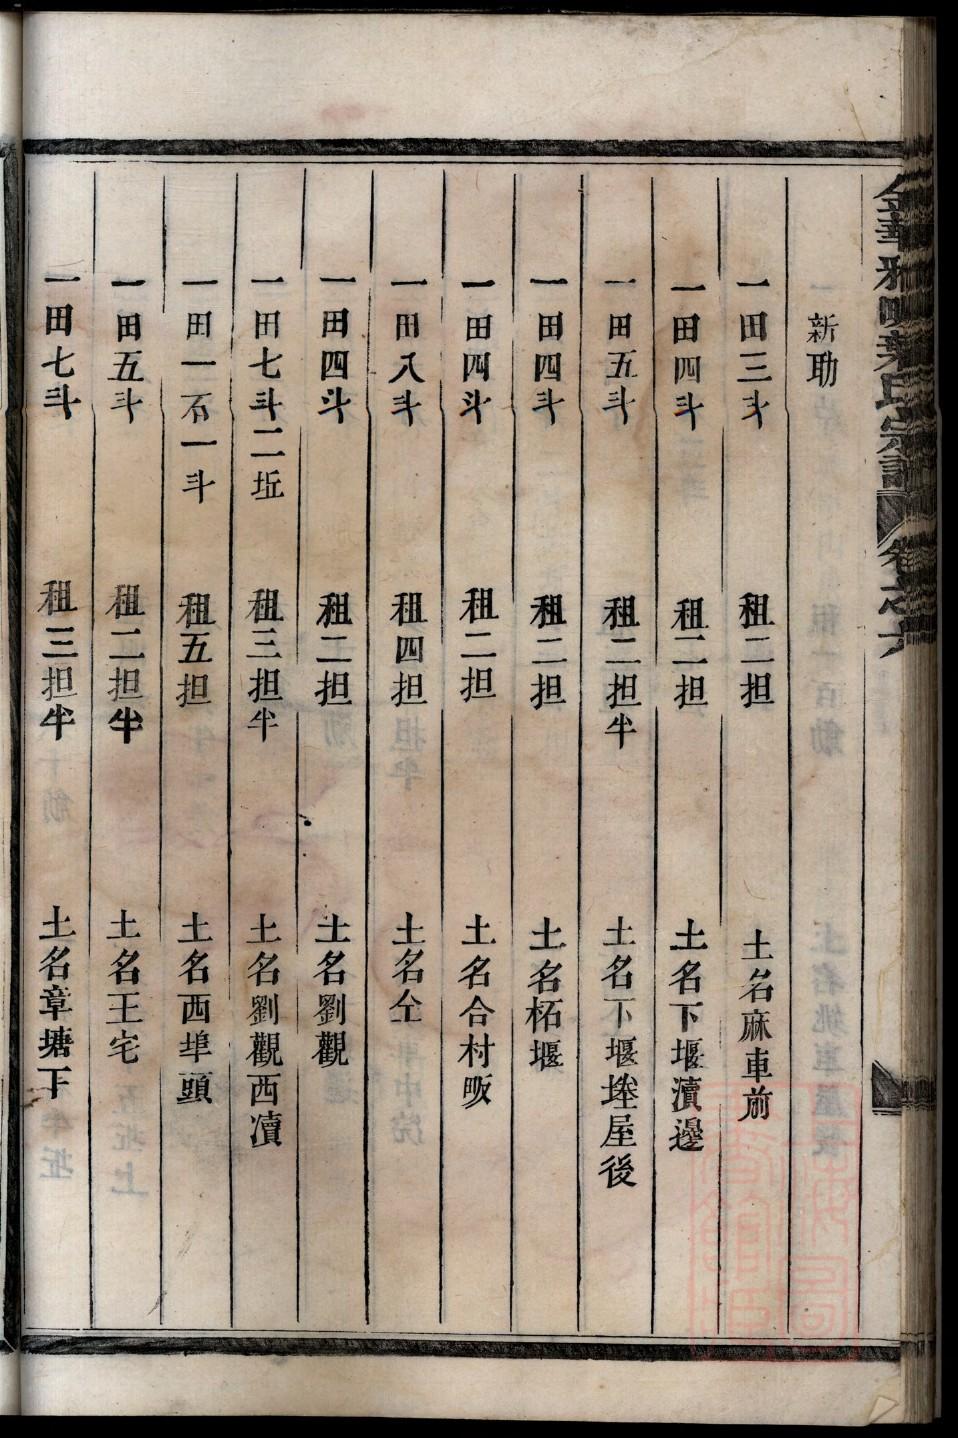 新助
一田三斗 租二担 土名麻車前
一田四斗 租二担 土名下堰瀆邊
一田五斗 租二担半 土名下堰塍屋後
一田四斗 租二担 土名柘堰
一田四斗 租二担 土名合村畈
一田八斗 租四担 土名仝
一田四斗 租二担 土名劉觀
一田七斗二坵 租三担半 土名劉觀西瀆
一田一石一斗 租五担 土名西埠頭
一田五斗 租二担半 土名王宅
一田七斗 租三担半 土名章塘下